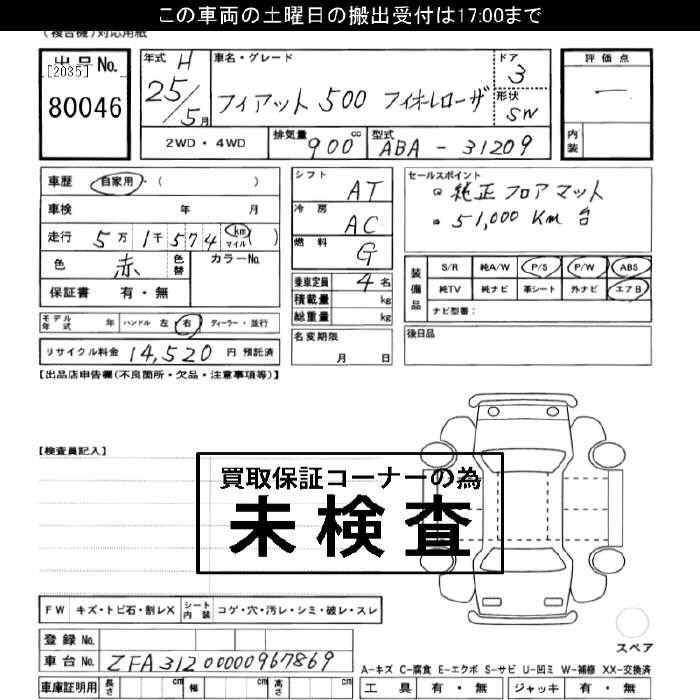 この車両の土曜日の搬出受付は17:00まで
(複合機)対応用紙
出品No.
[2035]
80046
年式 H
25/5月
車名・グレード
フィアット 500 フィオーレローザ
ドア
3
形状
SN
評価点
一
内装
2WD・4WD
排気量 900 cc
型式 ABA - 31209
車歴 自家用・( )
車検 年 月
走行 5万1千574 km マイル ( )
色 赤 色替 カラーNo.
保証書 有・無
シフト AT
冷房 AC
燃料 G
乗車定員 4 名
積載量 kg
総重量 kg
セールスポイント
純正フロアマット
51,000 Km 台
装備品
S/R 純A/W P/S P/W ABS
純TV 純ナビ 革シート 外ナビ エアB
ナビ型番:
モデル年式 年 ハンドル 左 右 ディーラー・並行
リサイクル料金 14,520 円 預託済
名変期限
月 日
後日品
【出品店申告欄(不良箇所・欠品・注意事項等)】
【検査員記入】
買取保証コーナーの為
未検査
FW キズ・トビ石・割レX シート内装 コゲ・穴・汚レ・シミ・破レ・スレ
スペア
登録No.
車台No. ZFA31200000967869
A-キズ C-腐食 E-エクボ S-サビ U-凹ミ W-補修 XX-交換済
車庫証明用 長さ cm 幅 cm 高さ cm
工具 有・無 ジャッキ 有・無